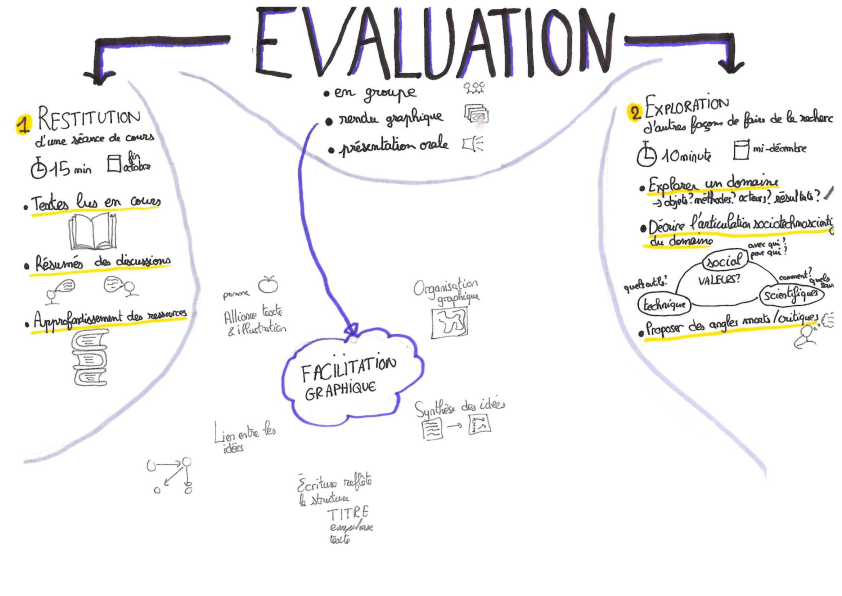 EVALUATION
• en groupe
• rendu graphique
• présentation orale
1 RESTITUTION
d'une séance de cours
15 min
fin octobre
• Textes lus en cours
• Résumés des discussions
• Approfondissement des ressources
2 EXPLORATION
d'autres façons de faire de la recherc
10 minute
mi-décembre
• Explorer un domaine
→ objets? méthodes? acteurs? résultats?
• Décrire l'articulation sociotechnoscienti
du domaine
avec qui?
pour qui?
social
VALEURS?
quels outils?
technique
comment?
quels
scientifiques
• Proposer des angles morts/critiques
pomme
Alliance texte
& illustration
Organisation
graphique
FACILITATION
GRAPHIQUE
Synthèse des idées
Lien entre les
idées
Écriture reflète
la structure
TITRE
emphase
texte